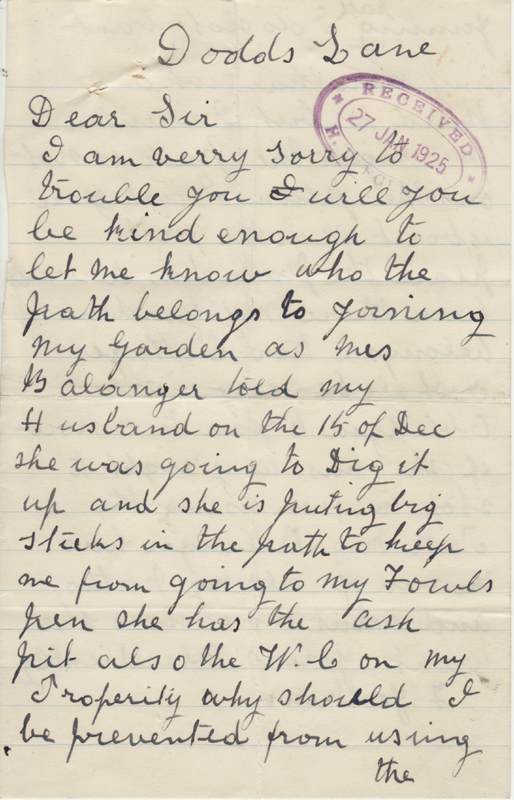 Dodds Lane
RECEIVED
27 JAN 1925
Dear Sir
I am verry sorry to
trouble you & will you
be kind enough to
let me know who the
path belongs to joining
my Garden as Mrs
Balanger told my
Husband on the 15 of Dec
she was going to Dig it
up and she is puting big
sticks in the path to keep
me from going to my Fowls
pen she has the ash
pit also the W.C on my
Properity why should I
be prevented from using
the